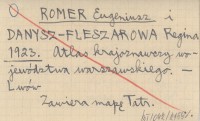 ROMER Eugeniusz i
DANYSZ-FLESZAROWA Regina
1923. Atlas krajoznawczy wo-
jewództwa warszawskiego. —
Lwów
Zawiera mapę Tatr.